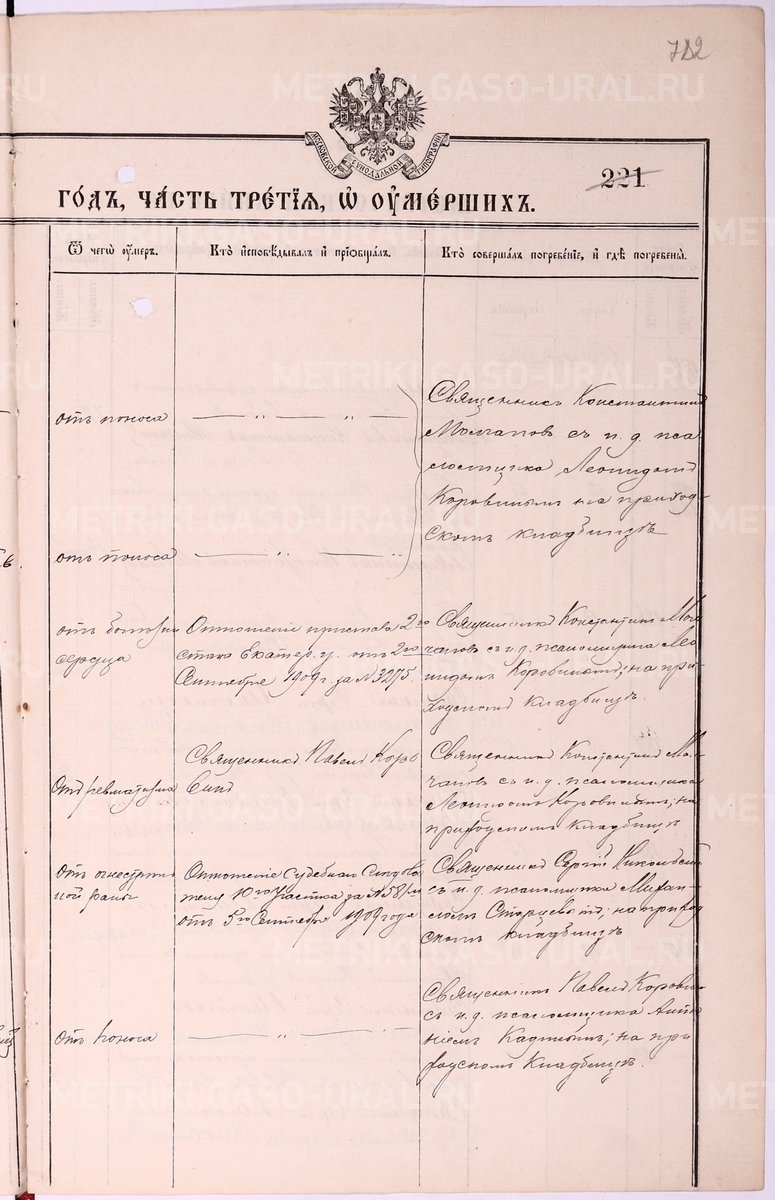 782
МОСКОВСКОЙ СИНОДАЛЬНОЙ ТИПОГРАФІИ
221
го́дъ, ча́сть тре́тїѧ, ѡ҆ ᲂу҆ме́ршихъ.
Ѿ чегѡ̀ ᲂу҆́меръ.
Кто̀ и҆сповѣ́дывалъ и҆ прїѡбща́лъ.
Кто̀ соверша́лъ погребе́нїе, и҆ гдѣ̀ погребены̀.
отъ поноса
Священникъ Константинъ
Молчановъ съ и. д. пса
ломщика Леонидомъ
Коровинымъ на приход-
скомъ кладбищѣ
отъ поноса
отъ болѣзни
сердца
Отношеніе пристава 2го
стана Екатер. у. отъ 2го
Сентября 1909 г. за № 3275.
Священникъ Константинъ Мол
чановъ съ и. д. псаломщика Лео
нидомъ Коровинымъ; на при-
ходскомъ кладбищѣ.
Отъ ревматизма
Священникъ Павелъ Коро
винъ
Священникъ Константинъ Мол
чановъ съ и. д. псаломщика
Леонидомъ Коровинымъ; на
приходскомъ кладбищѣ
Отъ огнестрѣль
ной раны
Отношеніе Судебнаго Слѣдова
теля 10го участка за №
отъ 5го Сентября 1909 года
Священникъ Сергій Никольскій
съ и. д. псаломщика Михаи-
ломъ Старцевымъ; на приход
скомъ кладбищѣ
отъ поноса
Священникъ Павелъ Коровинъ
съ и. д. псаломщика Анто
ніемъ на при
ходскомъ кладбищѣ.
METRIKI.GASO-URAL.RU